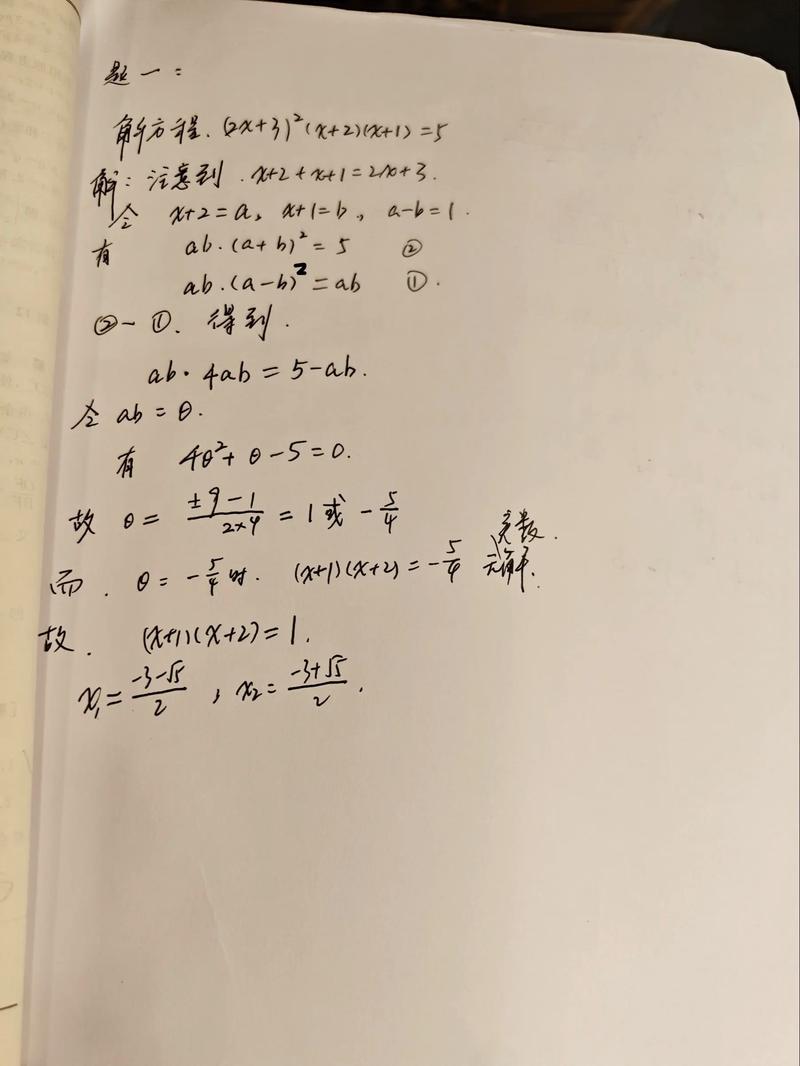 题一：
解方程. (2x+3)²(x+2)(x+1)=5
解：注意到. x+2+x+1=2x+3.
令 x+2=a, x+1=b, a-b=1.
有 ab·(a+b)²=5 ②
ab·(a-b)²=ab ①.
②-①. 得到.
ab·4ab=5-ab.
令 ab=θ.
有 4θ²+θ-5=0.
故 θ= (±9-1)/(2×4) =1或 -5/4
而. θ=-5/4时. (x+1)(x+2)=-5/4 实数无解.
故. (x+1)(x+2)=1.
x₁=(-3-√5)/2 , x₂=(-3+√5)/2.